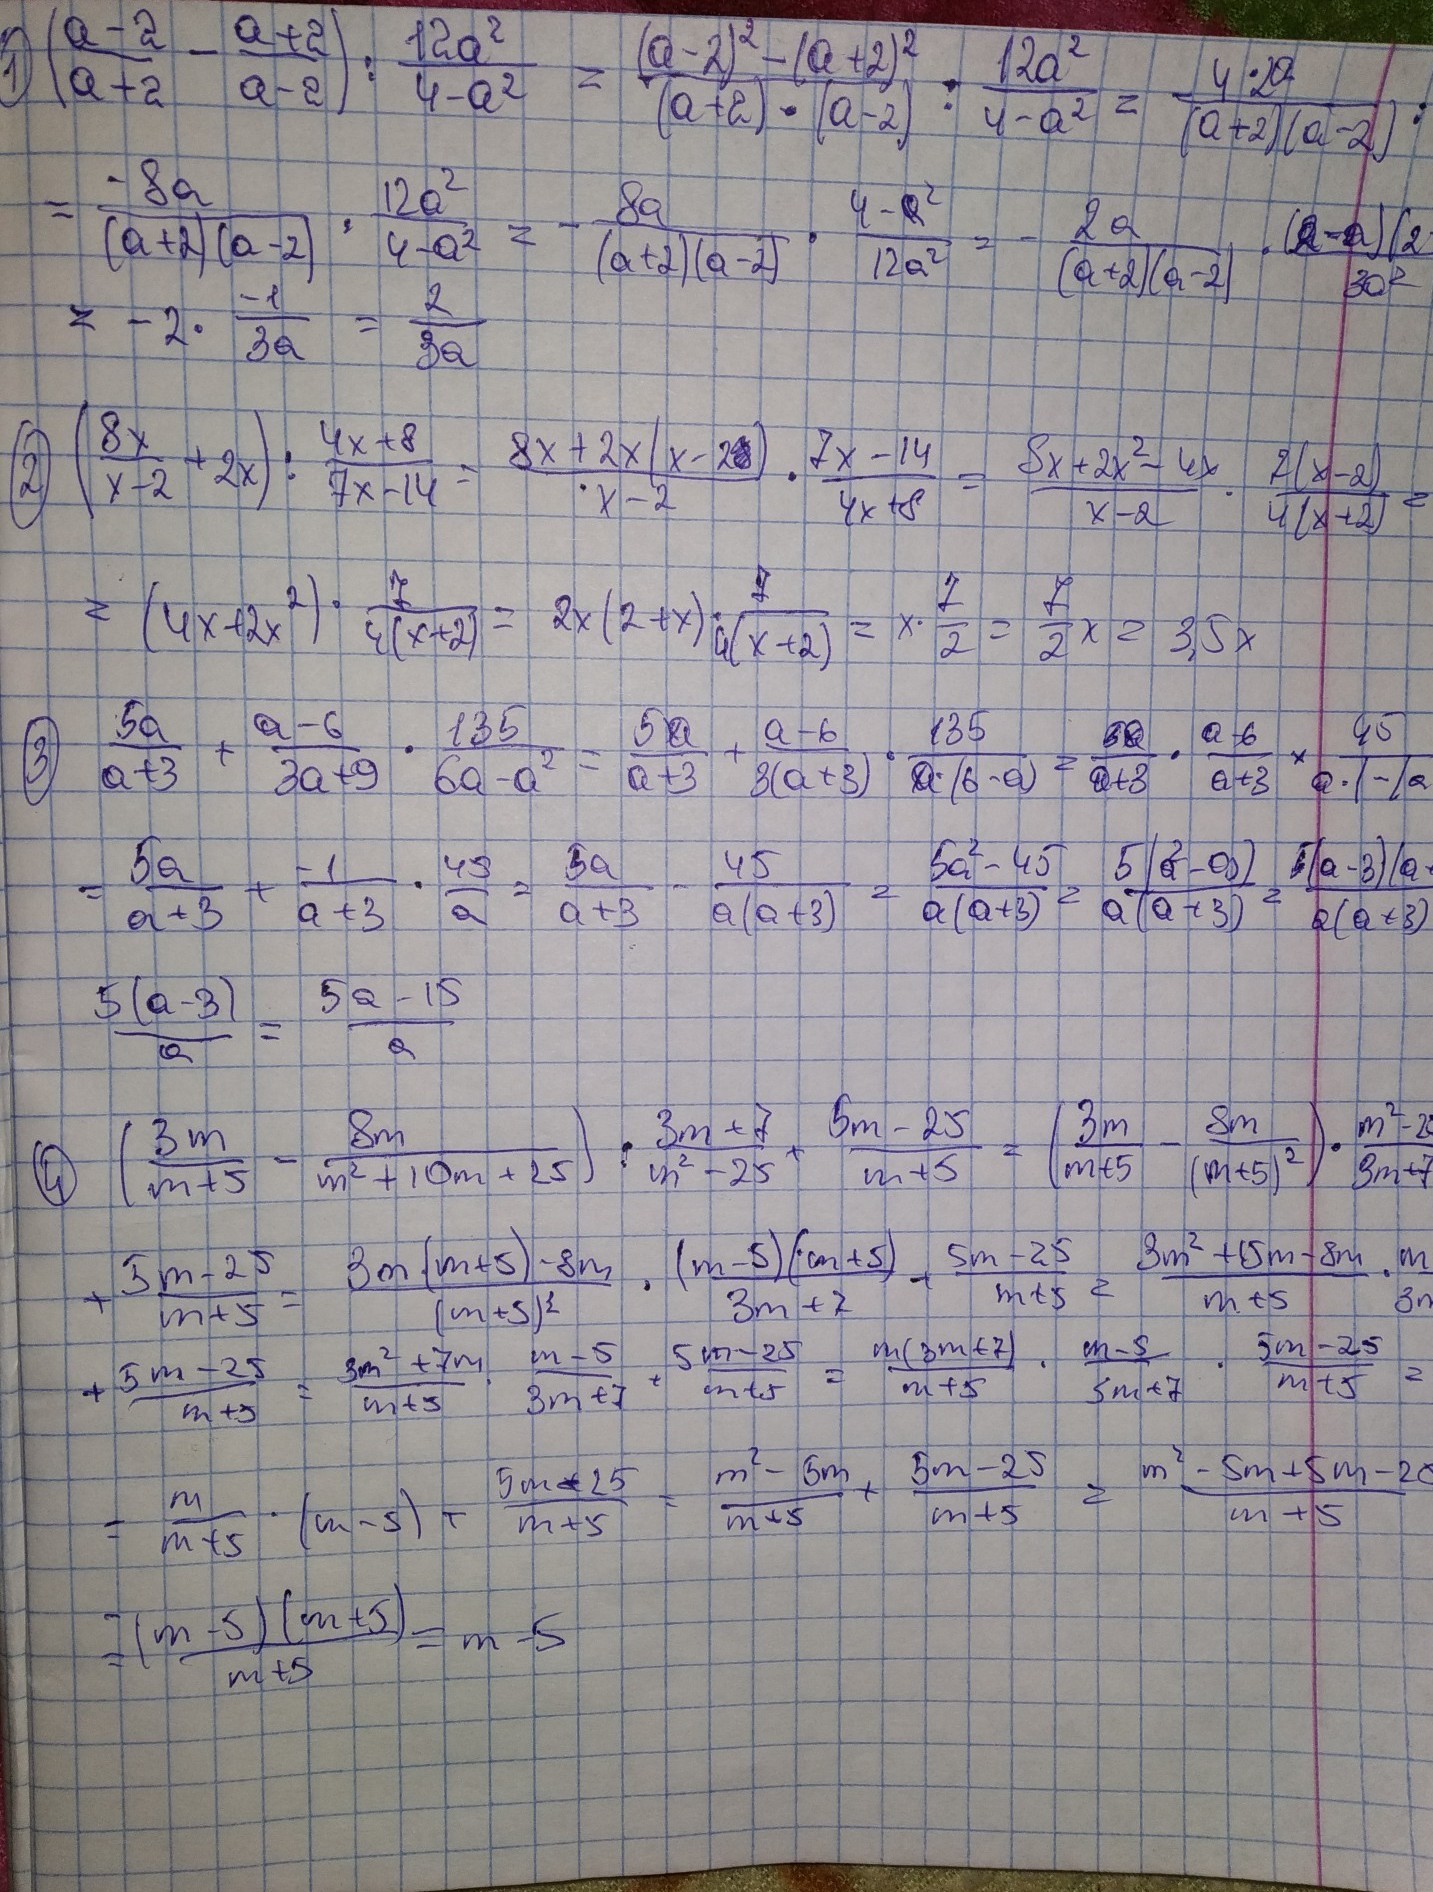 1) ((a-2)/(a+2) - (a+2)/(a-2)) : 12a²/(4-a²) = ((a-2)² - (a+2)²)/((a+2)·(a-2)) : 12a²/(4-a²) = - (4·2a)/((a+2)(a-2)) :
= -8a/((a+2)(a-2)) : 12a²/(4-a²) = - 8a/((a+2)(a-2)) · (4-a²)/12a² = - 2a/((a+2)(a-2)) · (2-a)(2/3a²
= -2 · -1/3a = 2/3a
2) (8x/(x-2) + 2x) : (4x+8)/(7x-14) = (8x+2x(x-2))/(x-2) · (7x-14)/(4x+8) = (8x+2x²-4x)/(x-2) · 7(x-2)/4(x+2) =
= (4x+2x²) · 7/4(x+2) = 2x(2+x) · 7/4(x+2) = x · 7/2 = 7/2 x = 3,5x
3) 5a/(a+3) + (a-6)/(3a+9) · 135/(6a-a²) = 5a/(a+3) + (a-6)/3(a+3) · 135/(a·(6-a)) = 5a/(a+3) · (a-6)/(a+3) × 45/(a·(-(a
= 5a/(a+3) + -1/(a+3) · 45/a = 5a/(a+3) - 45/a(a+3) = (5a²-45)/a(a+3) = 5(a²-9)/a(a+3) = 5(a-3)(a+/a(a+3)
5(a-3)/a = (5a-15)/a
4) (3m/(m+5) - 8m/(m²+10m+25)) : (3m+7)/(m²-25) + (5m-25)/(m+5) = (3m/(m+5) - 8m/(m+5)²) · m²-2/3m+7
+ (5m-25)/(m+5) = (3m·(m+5)-8m)/(m+5)² · (m-5)(m+5)/(3m+7) + (5m-25)/(m+5) = (3m²+15m-8m)/(m+5) · m/3m
+ (5m-25)/(m+5) = (3m²+7m)/(m+5) · (m-5)/(3m+7) + (5m-25)/(m+5) = m(3m+7)/(m+5) · (m-5)/(3m+7) · (5m-25)/(m+5) =
= m/(m+5) · (m-5) + (5m-25)/(m+5) = (m²-5m)/(m+5) + (5m-25)/(m+5) = (m²-5m+5m-25)/(m+5)
= (m-5)(m+5)/(m+5) = m-5